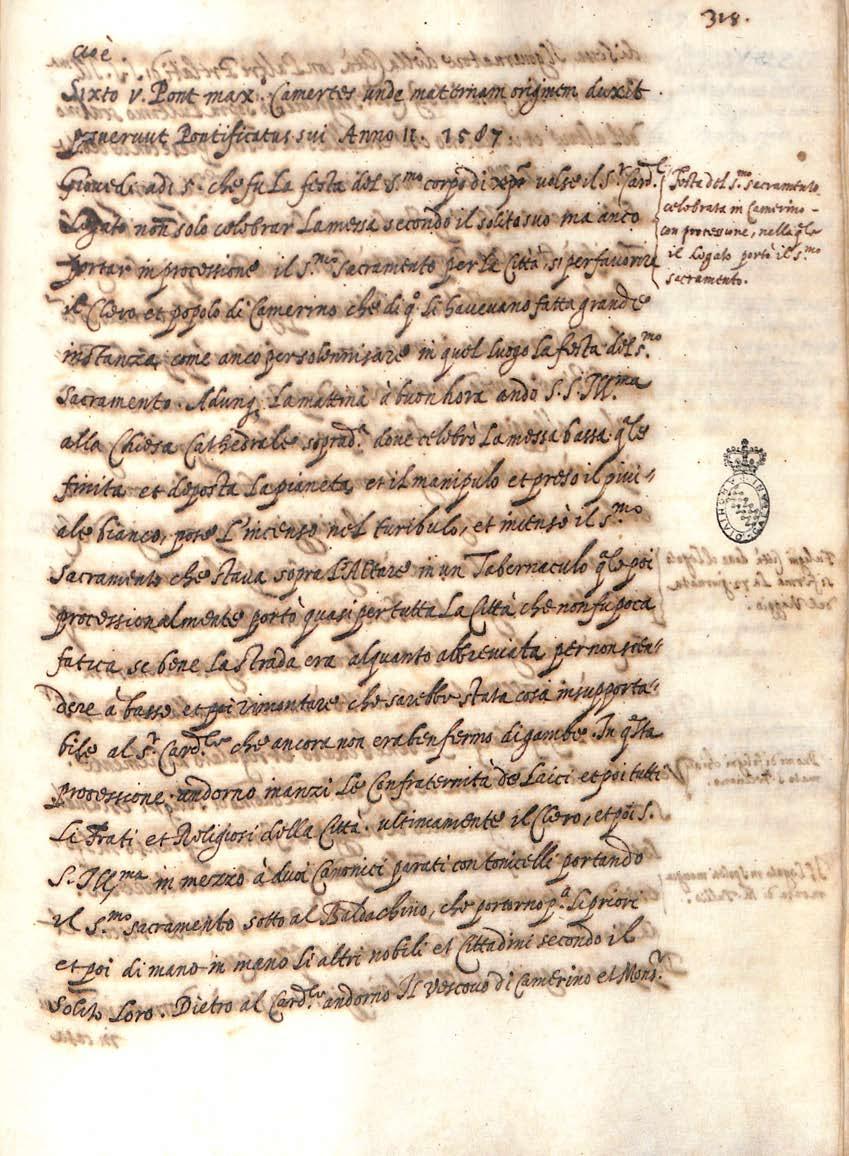 318.
cioè
Sixto v. Pont max. Camertes unde maternam originem duxit
Pontificatus sui Anno II. 1587.
Giovedi adi 5. che fu la festa del S.mo corpo di xpo volse il S.r Card.l
Legato non solo celebrar la messa secondo il solito suo ma anco
portar in processione il S.mo sacramento per la Città, si per favorire
il Clero et popolo di Camerino che di qo li havevano fatta grande
instanza, come anco per solennisare in quel luogo la festa del S.mo
Sacramento. Adunq. la mattina à buon hora andò S.S. Ill.ma
alla Chiesa Cathedrale soprad.a dove celebrò la messa bassa qle
finita et deposta la pianeta, et il manipulo et preso il pivi-
ale bianco, pose l'incenso nel turibulo, et incensò il S.mo
Sacramento che stava sopra l'Altare in un Tabernaculo qle poi
processionalmente portò quasi per tutta la Città che non fu poca
fatica se bene la strada era alquanto abbreviata per non scen-
dere à basso et poi rimontare che sarebbe stata cosa insupporta-
bile al S.r Card.le che ancora non era ben fermo di gambe. In qsta
Processione andorno inanzi le Confraternità de Laici et poi tutti
li Frati et Religiosi della Città. ultimamente il Clero, et poi S.
S. Ill.ma in mezzo à duoi Canonici parati con tonicelli portando
il S.mo sacramento sotto al Baldachino, che portorno p.a li priori
et poi di mano in mano li altri nobili et Cittadini secondo il
solito loro. Dietro al Card.le andorno Il Vescovo di Camerino et Mons.r
Festa del S.mo sacramento
celebrata in Camerino
con processione, nella qle
il Legato portò il S.mo
sacramento.